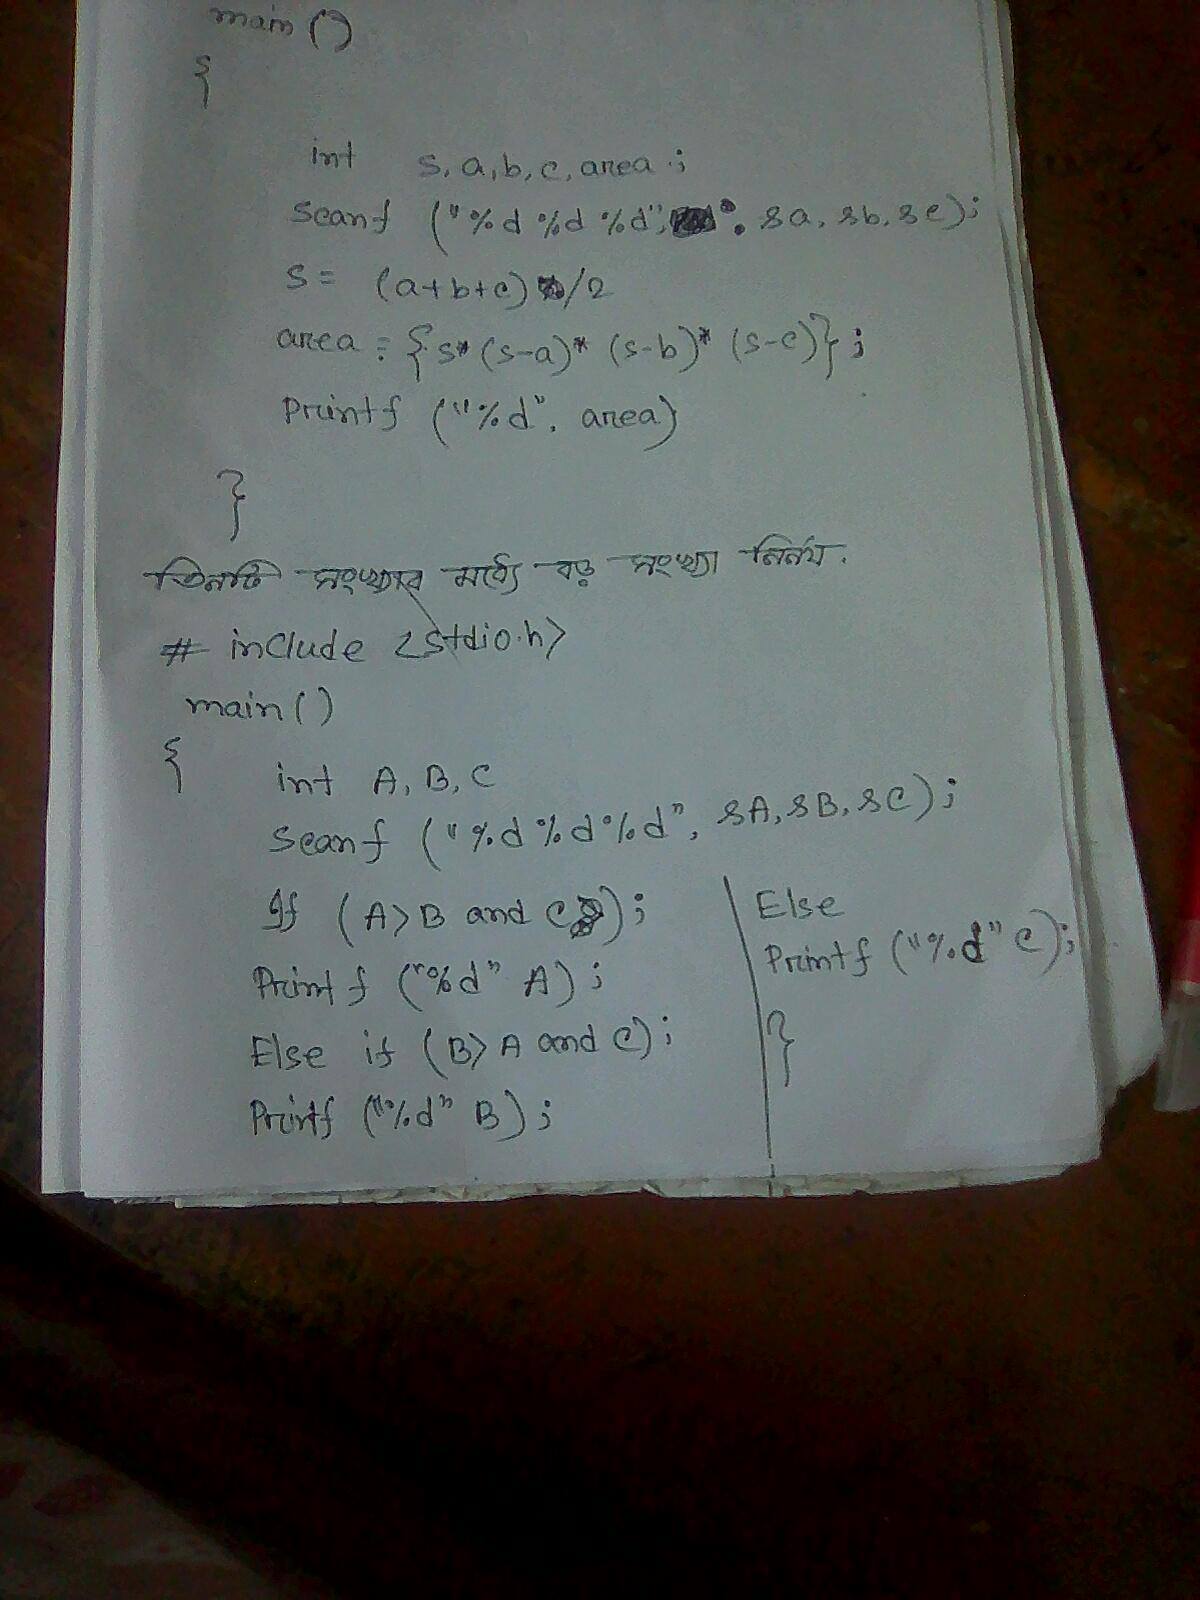 main ()
{
int s, a, b, c, area ;
Scanf ("%d %d %d", &a, &b, &c);
S = (a+b+c) /2
area = {s* (s-a)* (s-b)* (s-c)} ;
Printf ("%d", area)
}
তিনটি সংখ্যার মধ্যে বড় সংখ্যা নির্নয়.
# include <Stdio.h>
main ( )
{
int A, B, C
Scanf ("%d %d %d", &A, &B, &C) ;
If (A>B and C) ;
Printf ("%d" A) ;
Else if (B> A and C) ;
Printf ("%d" B) ;
Else
Printf ("%d" C) ;
}